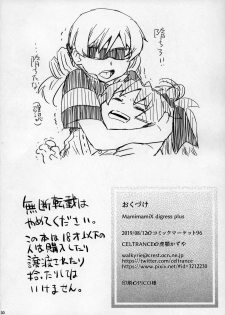 無断転載は
やめてください。
この本は18才以下の
人は購入したり
譲渡されたり
拾ったりしては
いけません。
おくづけ
MamimamiX digress plus
2019/08/12@コミックマーケット96
CELTRANCE@虎龍かずや
walkyrie@crest.ocn.ne.jp
https://twitter.com/celtrance
https://www.pixiv.net/#id=3212230
印刷@PICO様